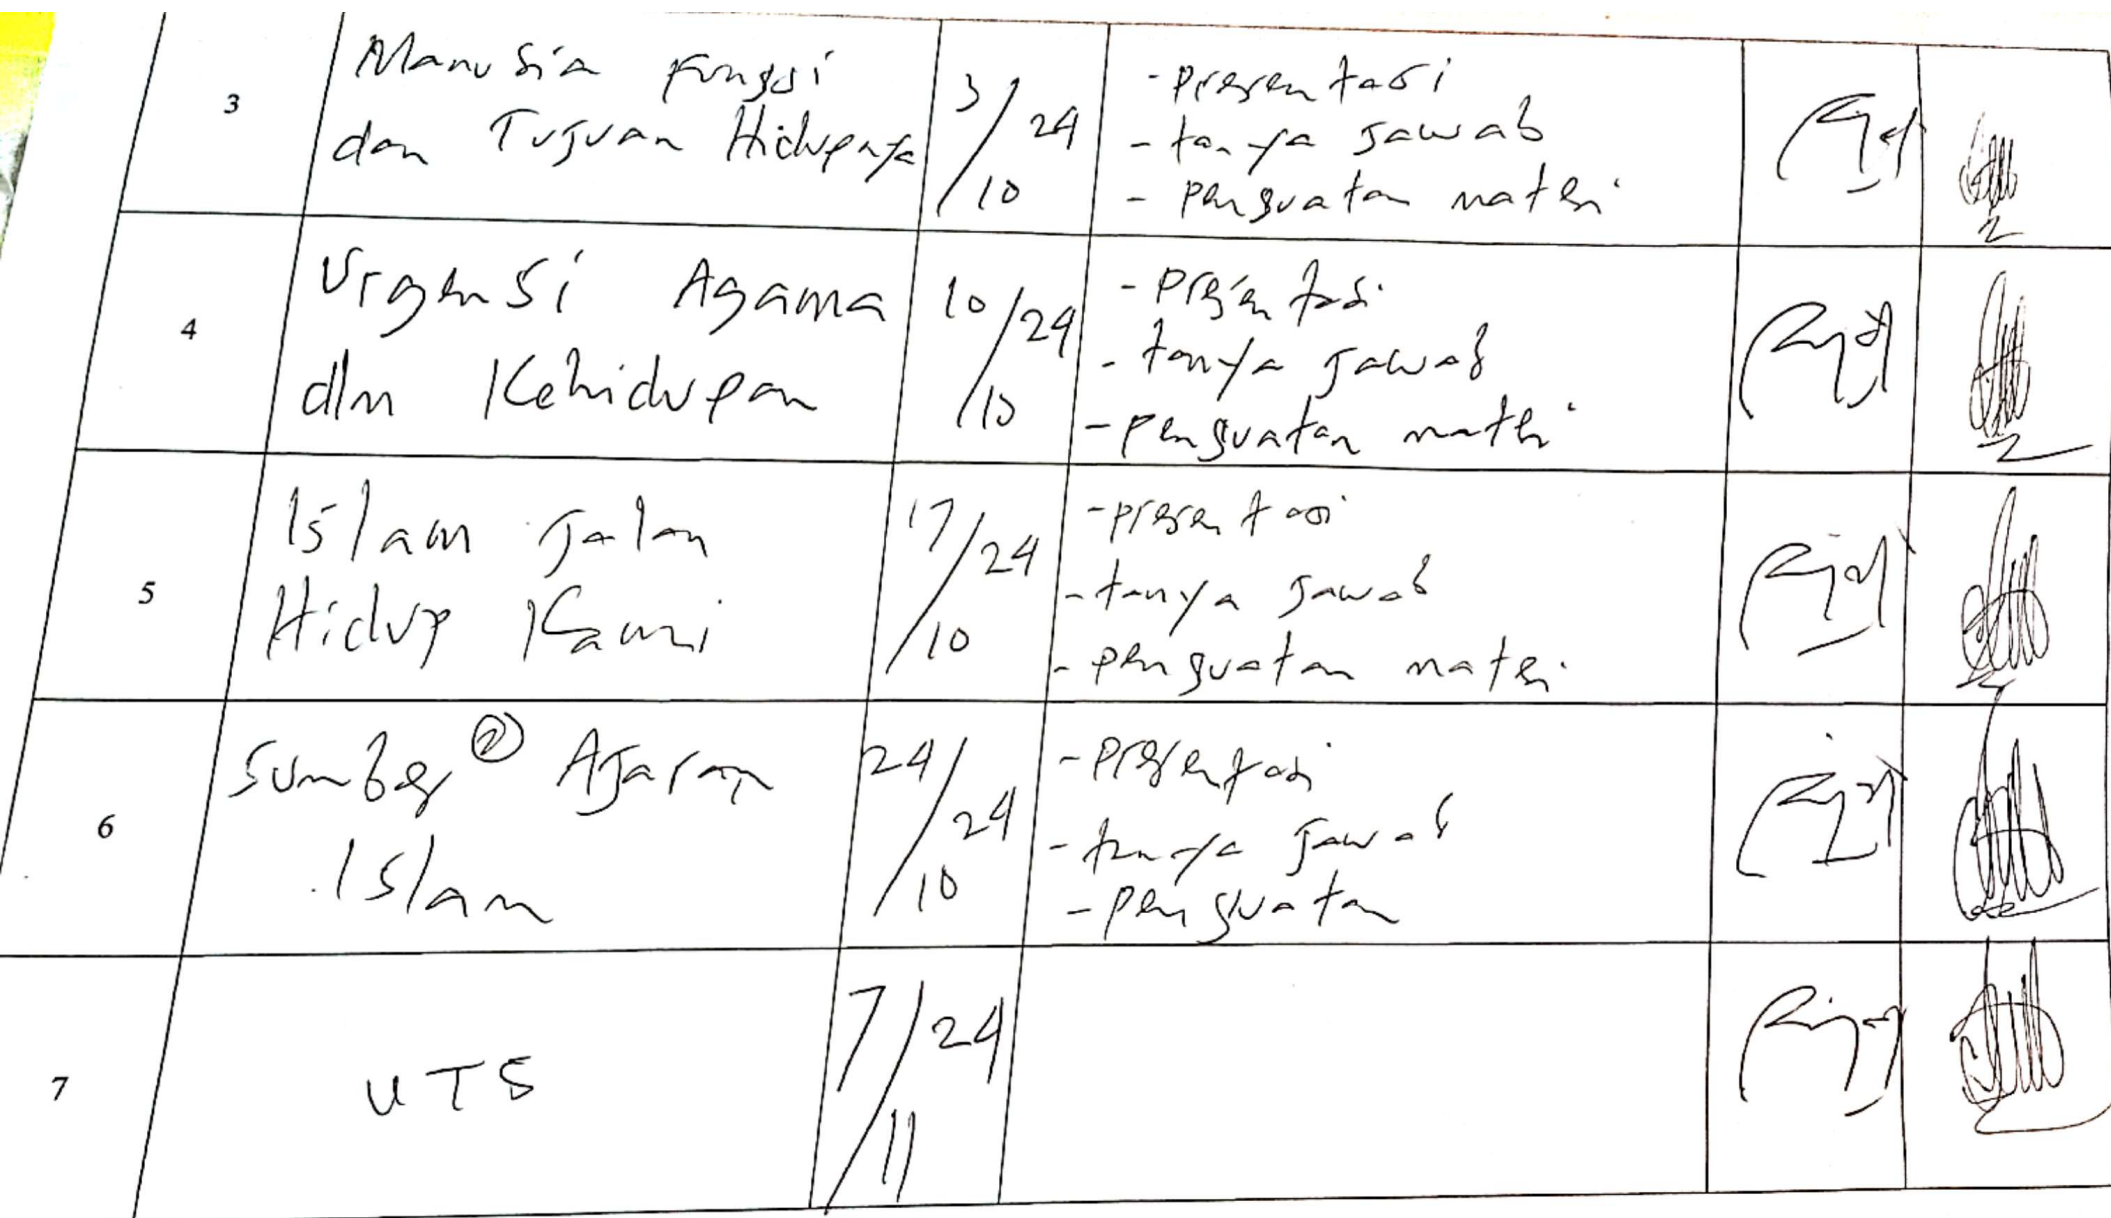 3
Manusia fungsi
dan Tujuan Hidupnya
3/10 24
- presentasi
- tanya jawab
- penguatan materi
4
Urgensi Agama
dlm Kehidupan
10/10 24
- presentasi
- tanya jawab
- penguatan materi
5
Islam jalan
Hidup Kami
17/10 24
- presentasi
- tanya jawab
- penguatan materi
6
Sumber ② Ajaran
Islam
24/10 24
- presentasi
- tanya jawab
- penguatan
7
UTS
7/11 24